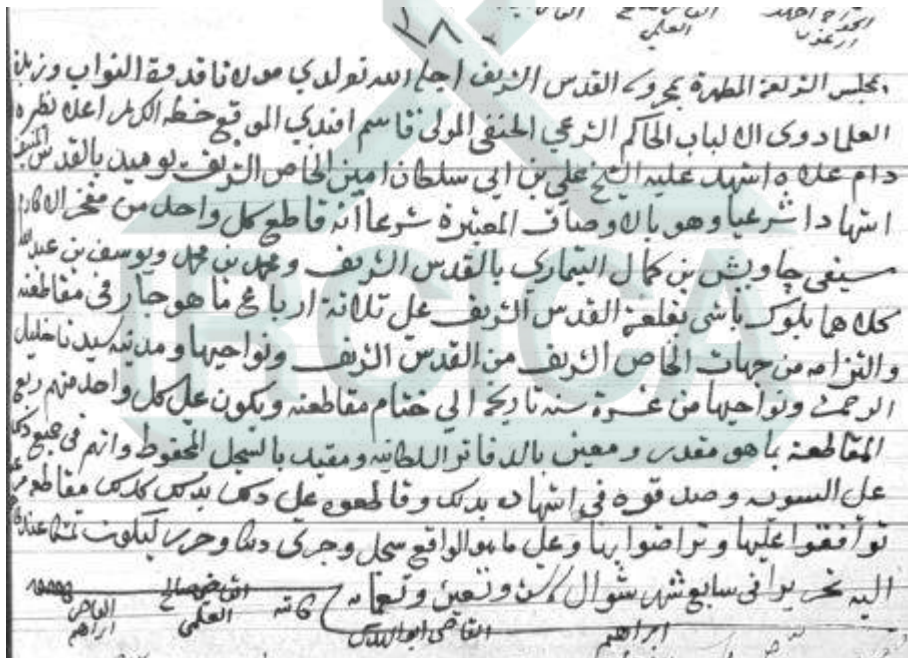 العلمي
بمجلس الشريعة المطهرة بمحروسة القدس الشريف اجلها الله تعالى لدي مولانا قدوة النواب وزبدة
العلما ذوي الالباب الحاكم الشرعي الحنفي المولى قاسم افندي الموقع خطه الكريم اعلاه نظره
دام علاه اشهد عليه الشيخ علي بن ابي سلطان امين الخاص الشريف يوميذ بالقدس المنيف
اشهادا شرعيا وهو بالاوصاف المعتبرة شرعا انه قاطع كل واحد من مفخر الاكارم
سيفي چاويش بن كمال التيماري بالقدس الشريف ومحمد بن محمد ويوسف بن عبد الله
كلاهما بلوك باشي بقلعة القدس الشريف على ثلاثة ارباع ما هو جار في مقاطعته
والتزامه من جهات الخاص الشريف من القدس الشريف ونواحيها ومدينة سيدنا خليل
الرحمن ونواحيها من غرة سنة تاريخه الى ختام مقاطعته ويكون على كل واحد منهم ربع
المقاطعة بما هو مقدر ومعين بالدفاتر السلطانية ومقيد بالسجل المحفوظ وانهم في جميع ذلك
على السوية وصدقوه في اشهاده بذلك وقاطعوه على ذلك بذلك كذلك مقاطعة
توافقوا عليها وتراضوا بها وعلى ما هو الواقع سجل وجرى ذلك وحرر ليكون
اليه تحريرا في سابع شهر شوال سنة وتسعين وتسعماية
القاضي صالح العلمي
القاضي ابراهيم
ابراهيم